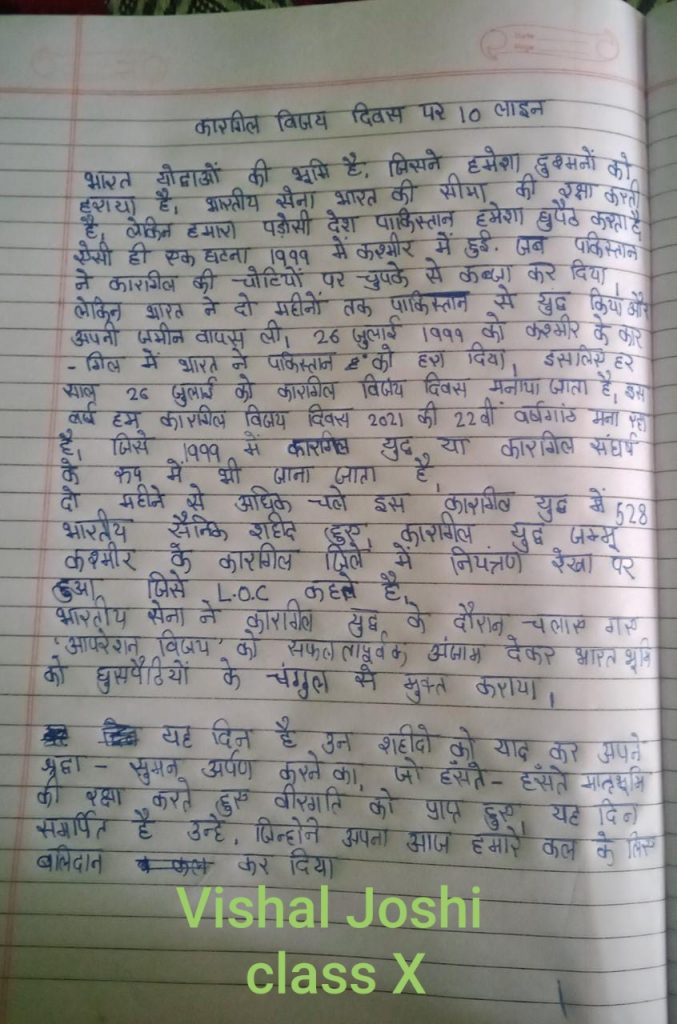 कारगिल विजय दिवस पर 10 लाइन
भारत योद्धाओं की भूमि है, जिसने हमेशा दुश्मनों को
हराया है, भारतीय सेना भारत की सीमा की रक्षा करती
है, लेकिन हमारा पड़ोसी देश पाकिस्तान हमेशा घुपैठ करता है
ऐसी ही एक घटना 1999 में कश्मीर में हुई. जब पकिस्तान
ने कारागिल की चोटियों पर चुपके से कब्ज़ा कर दिया,
लेकिन भारत ने दो महीनों तक पाकिस्तान से युद्ध किया और
अपनी जमीन वापस ली, 26 जुलाई 1999 को कश्मीर के कार
- गिल में भारत ने पकिस्तान को हरा दिया, इसलिए हर
साल 26 जुलाई को कारागिल विजय दिवस मनाया जाता है, इस
वर्ष हम कारागिल विजय दिवस 2021 की 22वीं वर्षगांठ मना रहा
है, जिसे 1999 में कारगिल युद्ध या कारागिल संघर्ष
के रूप में भी जाना जाता है,
दो महीने से अधिक चले इस कारागिल युद्ध में 528
भारतीय सैनिक शहीद हुए, कारागिल युद्ध जम्मू
कश्मीर के कारागिल जिले में नियंत्रण रेखा पर
हुआ जिसे L.O.C कहते है,
भारतीय सेना ने कारागिल युद्ध के दौरान चलाए गए
'आपरेशन विजय' को सफलतापूर्वक अंजाम देकर भारत भूमि
को घुसपैठियों के चंगुल से मुक्त कराया,
यह दिन है उन शहीदो को याद कर अपने
श्रद्धा - सुमन अर्पण करने का, जो हँसते - हँसते मातृभूमि
की रक्षा करते हुए वीरगति को प्राप्त हुए, यह दिन
समर्पित है उन्हे, जिन्होने अपना आज हमारे कल के लिए
बलिदान कर दिया
Vishal Joshi
class X